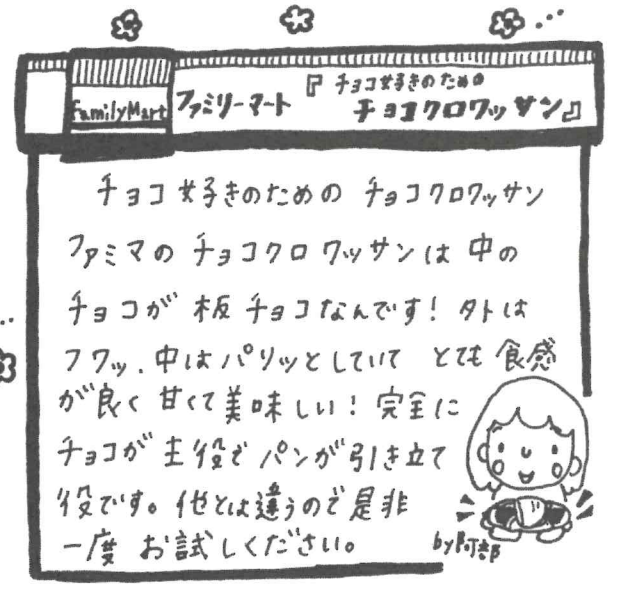 FamilyMart ファミリーマート 『チョコ好きのための
チョコクロワッサン』
チョコ好きのための チョコクロワッサン
ファミマの チョコクロワッサンは 中の
チョコが 板チョコなんです! 外は
フワッ、中はパリッとしていて とても 食感
が良く 甘くて美味しい! 完全に
チョコが 主役で パンが引き立て
役です。他とは違うので 是非
一度 お試しください。
by 阿部